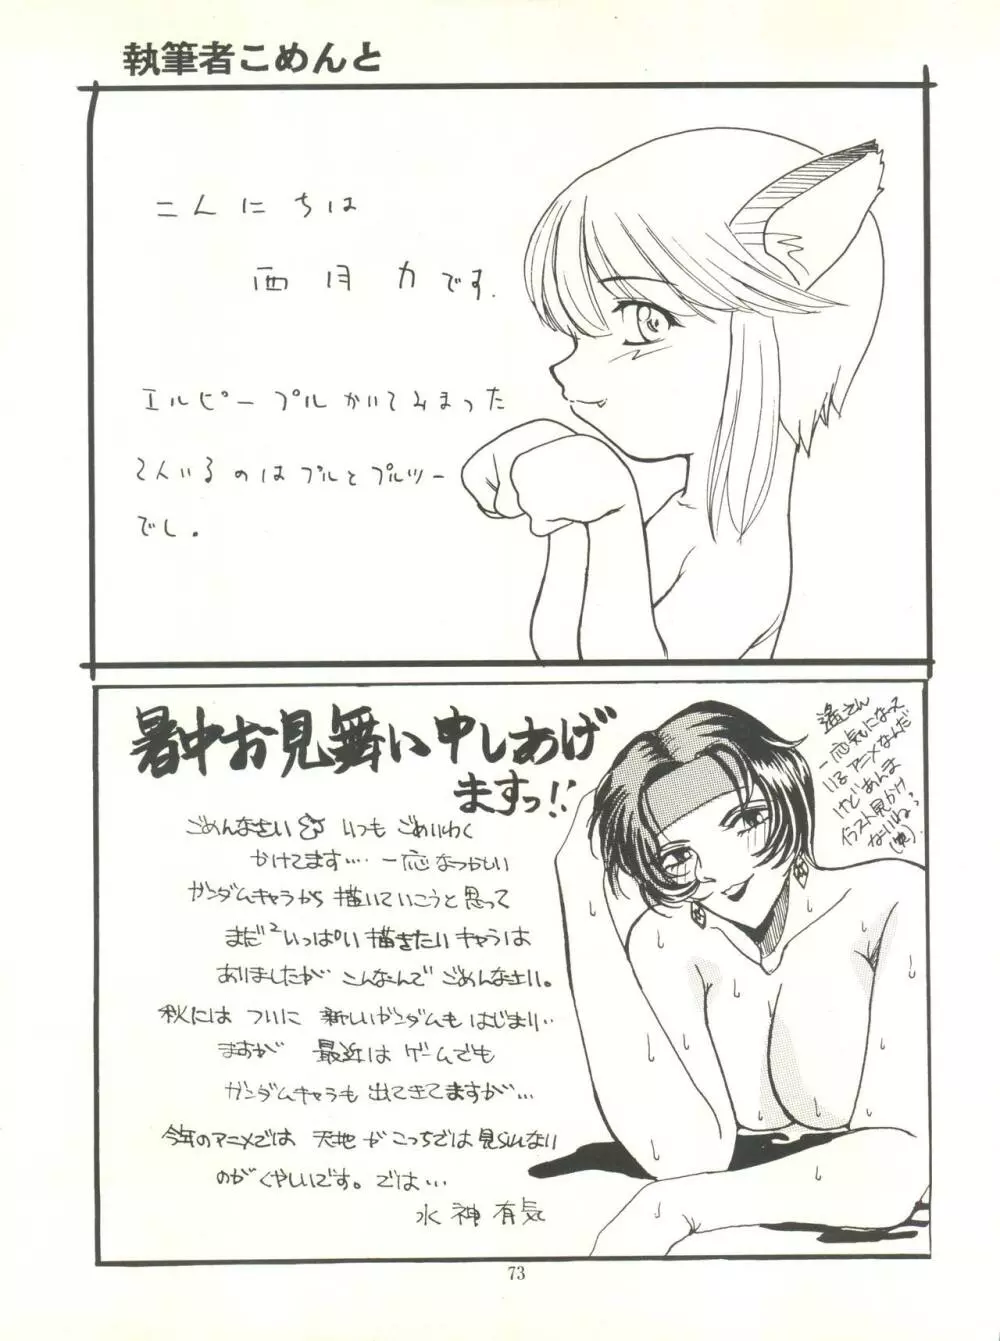 執筆者こめんと
こんにちは
西月力です.
エルピープルかいてみまった
2人いるのはプルとプルツー
でし。
暑中お見舞い申しあげ
ますっ!!
ごめんなさい いつも ごめいわく
かけてます… 一応なつかしい
ガンダムキャラから 描いていこうと思って
まだ²いっぱい 描きたい キャラは
ありましたが こんなんで ごめんなさい。
秋には ついに 新しいガンダムも はじまり…
ますが 最近は ゲームでも
ガンダムキャラも 出てきてますが…
今年のアニメでは 天地が こっちでは 見られない
のが くやしいです。では…
水神有気
遙さん
一応気になース
いるアニメなんだ
けどあんま
イラスト見かけ
ないねっ
73